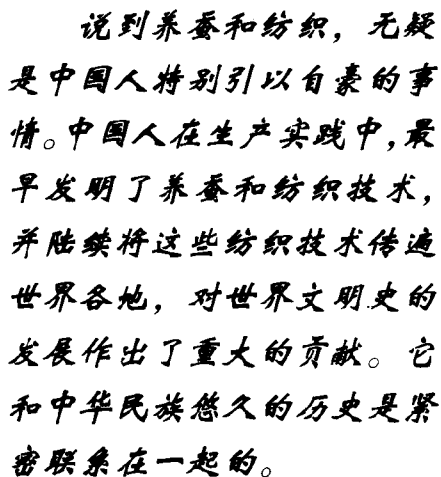 说到养蚕和纺织，无疑
是中国人特别引以自豪的事
情。中国人在生产实践中，最
早发明了养蚕和纺织技术，
并陆续将这些纺织技术传遍
世界各地，对世界文明史的
发展作出了重大的贡献。它
和中华民族悠久的历史是紧
密联系在一起的。